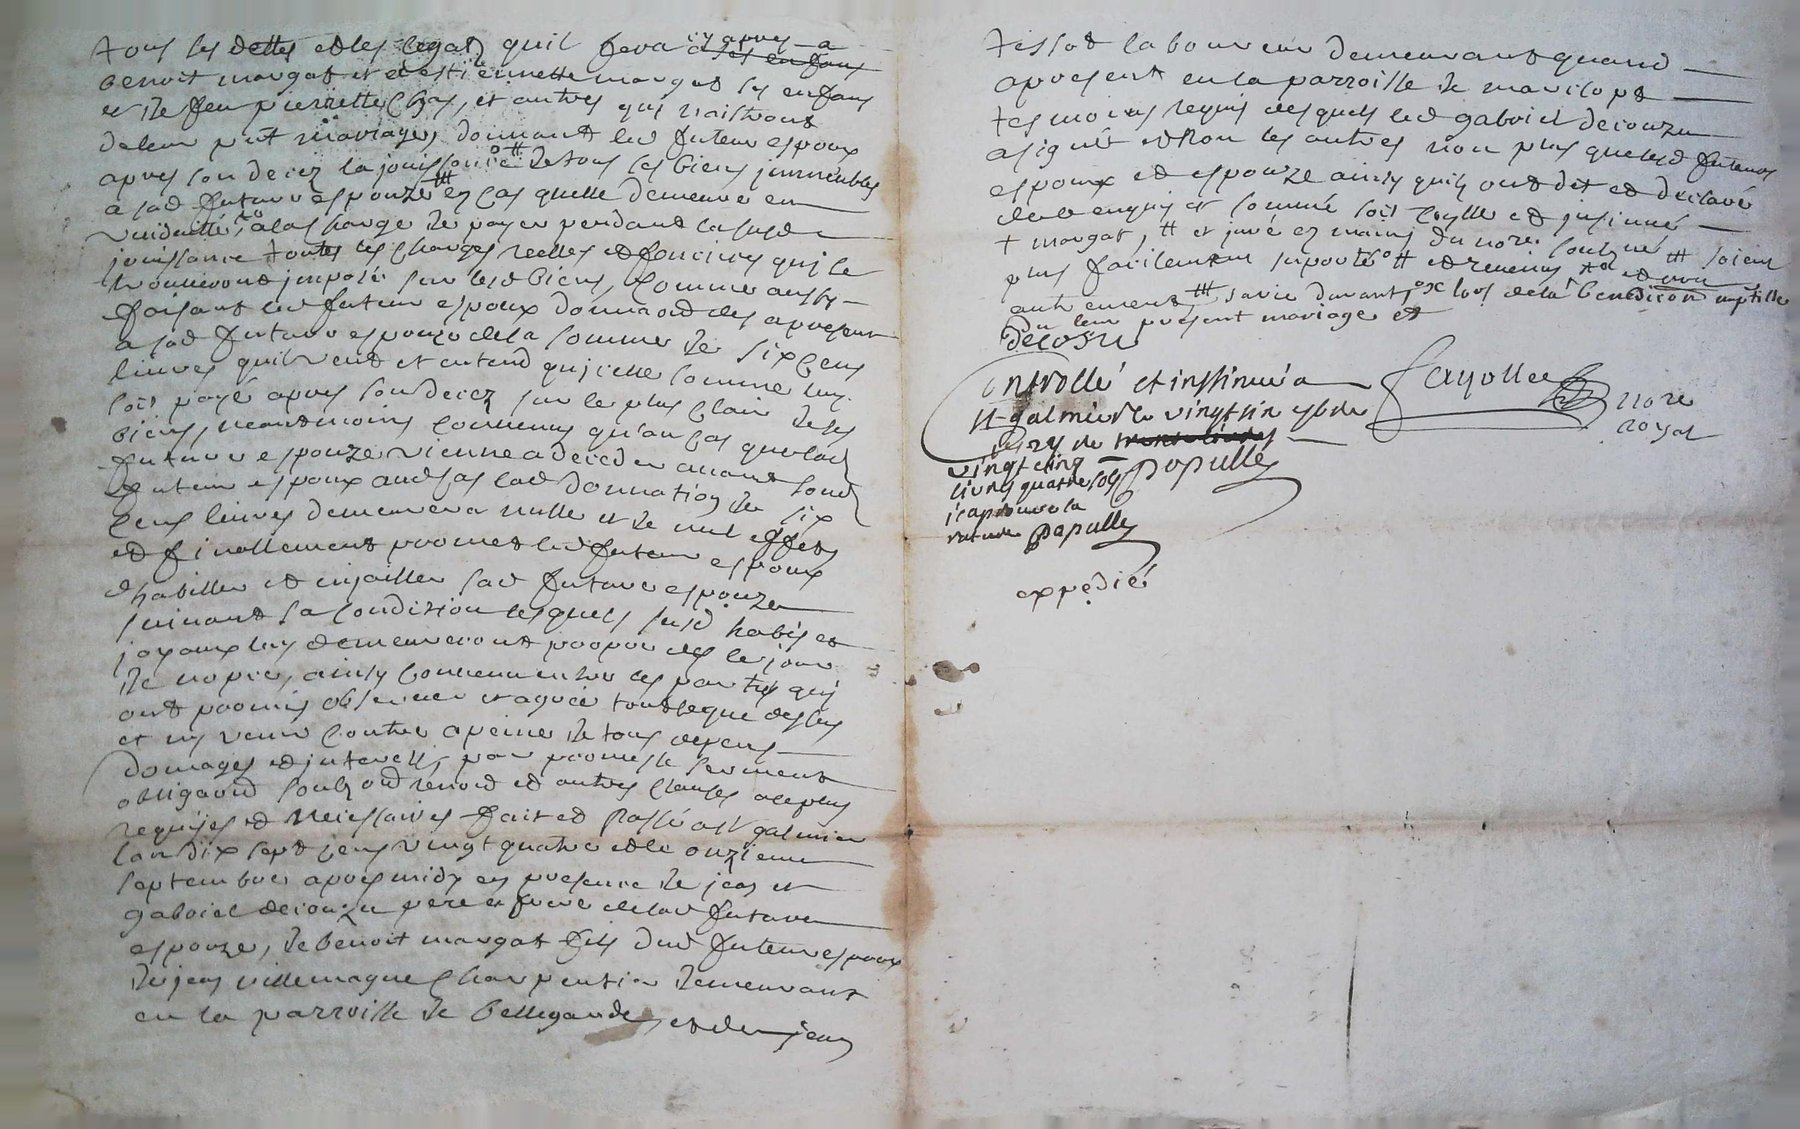 tous les debtes et les legatz quil fera cy apres a ses enfans
benoit margat et et estiennette margat ses enfans
et de feu pierrette Chas, et autres qui naistront
de leur pnt mariage, donnant led futeur espoux
apres son decez la jouissance de tous ses biens jmmeubles
a sad future espouze en cas quelle demeure en
viduitté, a la charge de payer pendant la susd
jouissance toutes les charges reelles et foncires qui se
trouveront jmposé sur lesd biens, Comme aussy
faisant led futeur espoux donnaõn des apresent
a sad future espouze de la somme de six cens
livres quil veut et entend qu'icelle somme luy
soit payé apres son decez sur le plus clair de ses
biens, neantmoins convenus qu'au cas que lad
future espouze vienne a deceder avant sond
futeur espoux aud cas lad donnation de six
cens livres demeurera nulle et de nul effet
et finallement promet led futeur espoux
dhabiller et enjoailler sad future espouze
suivant sa condition lesquels susd habis et
joyaux luy demeureront propre des le jour
de nopce, ainsy convenu entre les parties qui
ont promis observer et agreé tout ce que dessus
et ny venir contre a peine de tous depens
domages et interests, par promesse serment
obligaõn soubz oõn renoõn et autres clauses a ce plus
requises et necessaires fait et passé a St galmier
lan dix sept cens vingt quatre et le onzieme
septembre apres midy en presence de jean et
gabriel decouzu pere et frere de lad future
espouze, de benoit margat fils dud futeur espoux
de jean villemagne charpentier demeurant
en la parroisse de bellegarde, et de jean
tissot laboureur demeurant quand
apresent en la parroisse de marclopt
tesmoins requis desquels led gabriel decouzu
a signé et non les autres non plus que lesd futeurs
espoux et espouze ainsy quils ont dit et declaré
de ce enquis et sommé soit scellé et jnsinué
+ margat, # et juré ez mains du nore soubzné soient
plus facilement suporté # et revenus et ou
autrement savie durant lors de la benediction nuptialle
du leur present mariage et
decosu
Controllé et inssinué a
St galmier le vingt six 7bre
1724 reçu
vingt cinq
livres quatre sols Popullé
japrouve la
rature Populle
Fayolle nore
royal
expedié